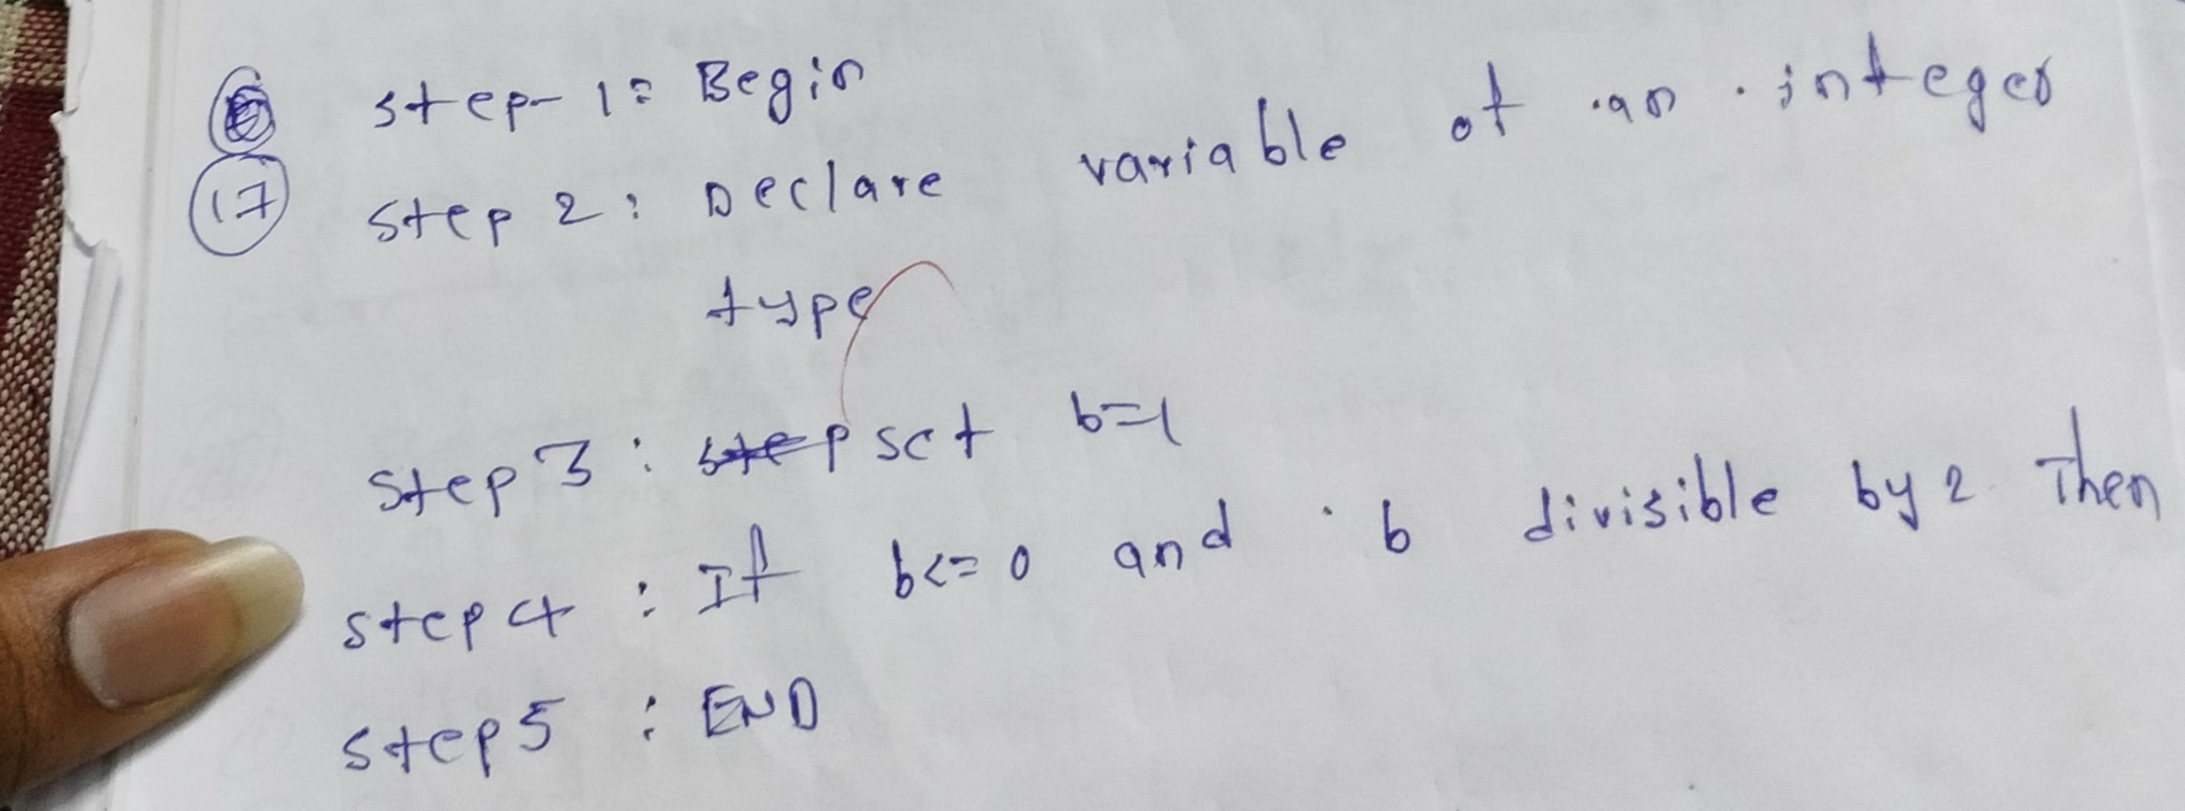 step-1: Begin
(17) step 2: Declare variable of an integer
type
step 3: step set b=1
step 4: If b<=0 and b divisible by 2 Then
step 5: END